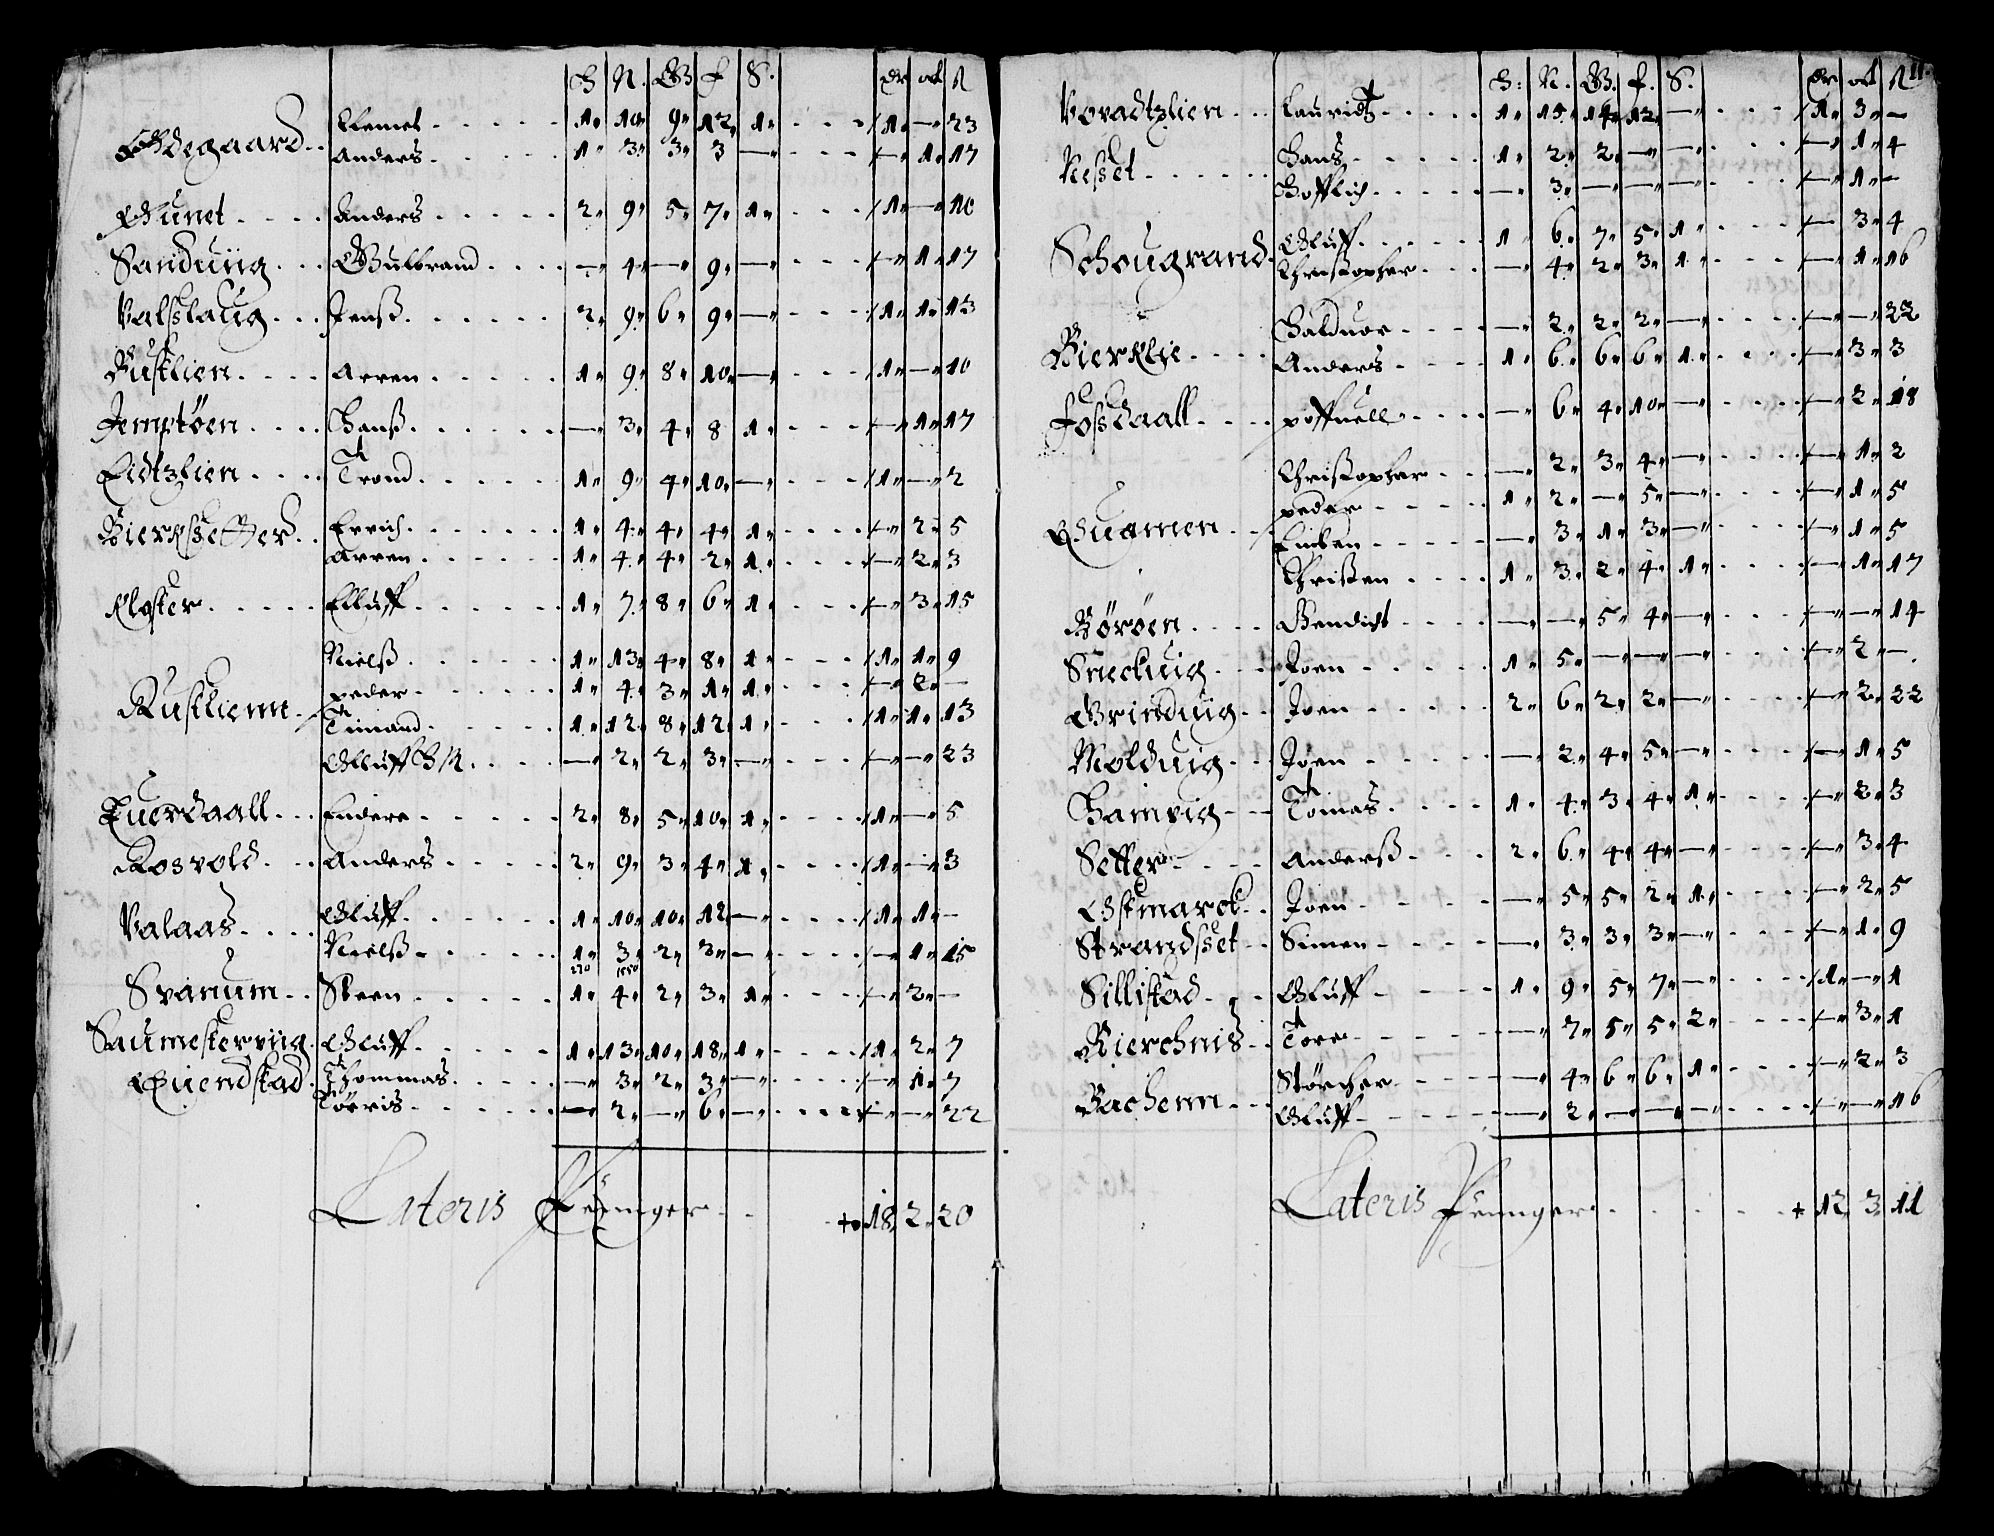 H N. G f S. Dr ort ß
Ødegaard.. Clemet 1 10 9 12 1 1 — 23
Anders 1 3 3 3 — — 1 17
Gunet Anders 2 9 5 7 1 1 — 10
Sanduiig Gulbrand — 4 — 9 — — 1 17
Valslaug Jenss 2 9 6 9 — 1 1 13
Busklien Arren 1 9 8 10 — 1 — 10
Jemptøen Hanss — 3 4 8 1 — 1 17
Eidtzlien Trond 1 9 4 10 — 1 — 2
Bierkssetter Errich 1 4 4 4 1 — 2 5
Arren 1 4 4 2 1 — 2 3
Kloster Elluff 1 7 8 6 1 — 3 15
Nielss 1 13 4 8 1 1 1 9
Rusthiem peder 1 4 3 1 1 — 2 —
Timand 1 12 8 12 1 1 1 13
Olluff — 2 2 3 — — — 23
Tuerdaall Endere 2 8 5 10 1 1 — 5
Rosvold Anders 2 9 3 4 1 1 — 3
Valaas Oluff 1 10 10 12 — 1 1 —
Nielss 1 3 2 3 — — 1 15
Svanum Steen 1 4 2 3 1 — 2 —
Saumestervüg Oluff 1 13 10 18 1 1 2 7
Eiiendstad Thommas — 3 2 3 — — 1 7
Tøeris — 2 — 6 — — — 22
Lateris Penninger 18 2 20
11.
H: N. G. f. S. Dr ort ß
Voradtzlien Lauridtz 1 15 14 12 — 1 3 —
Nesset Hans 1 2 2 — — — 1 4
— 3 — — — — 1 —
Schougrand Oluff 1 6 7 5 1 — 3 4
Christopher — 4 2 3 1 — 1 16
Halduor — 2 2 2 — — — 22
Bierklie Anders 1 6 6 6 1 — 3 3
Fossdaall poffuell — 6 4 10 — — 2 18
Christopher — 2 3 4 — — 1 2
peder 1 2 — 5 — — 1 5
Quamen — 3 1 3 — — 1 5
Christen 1 3 2 4 1 — 1 17
Børøen Bendicht — — 5 4 — — — 14
Sneckuig Joen 1 5 — — — — 2 —
Grinduiig Joen 2 6 2 2 — — 2 22
Molduig Jøen — 2 4 5 — — 1 5
Hamvig Tomas 1 4 3 4 1 — 2 3
Setter Anderss 2 6 4 4 — — 3 4
Østmarck Joen — 5 5 2 1 — 2 5
Strandsset Simen — 3 3 3 — — 1 9
Sillistad Oluff 1 9 5 7 — 1 — 1
Bierchnis Tore — 7 5 5 2 — 3 1
Bachenn Størcher — 4 6 6 1 — 2 3
Oluff — 2 — — — — — 16
Lateris Penninger 12 3 11